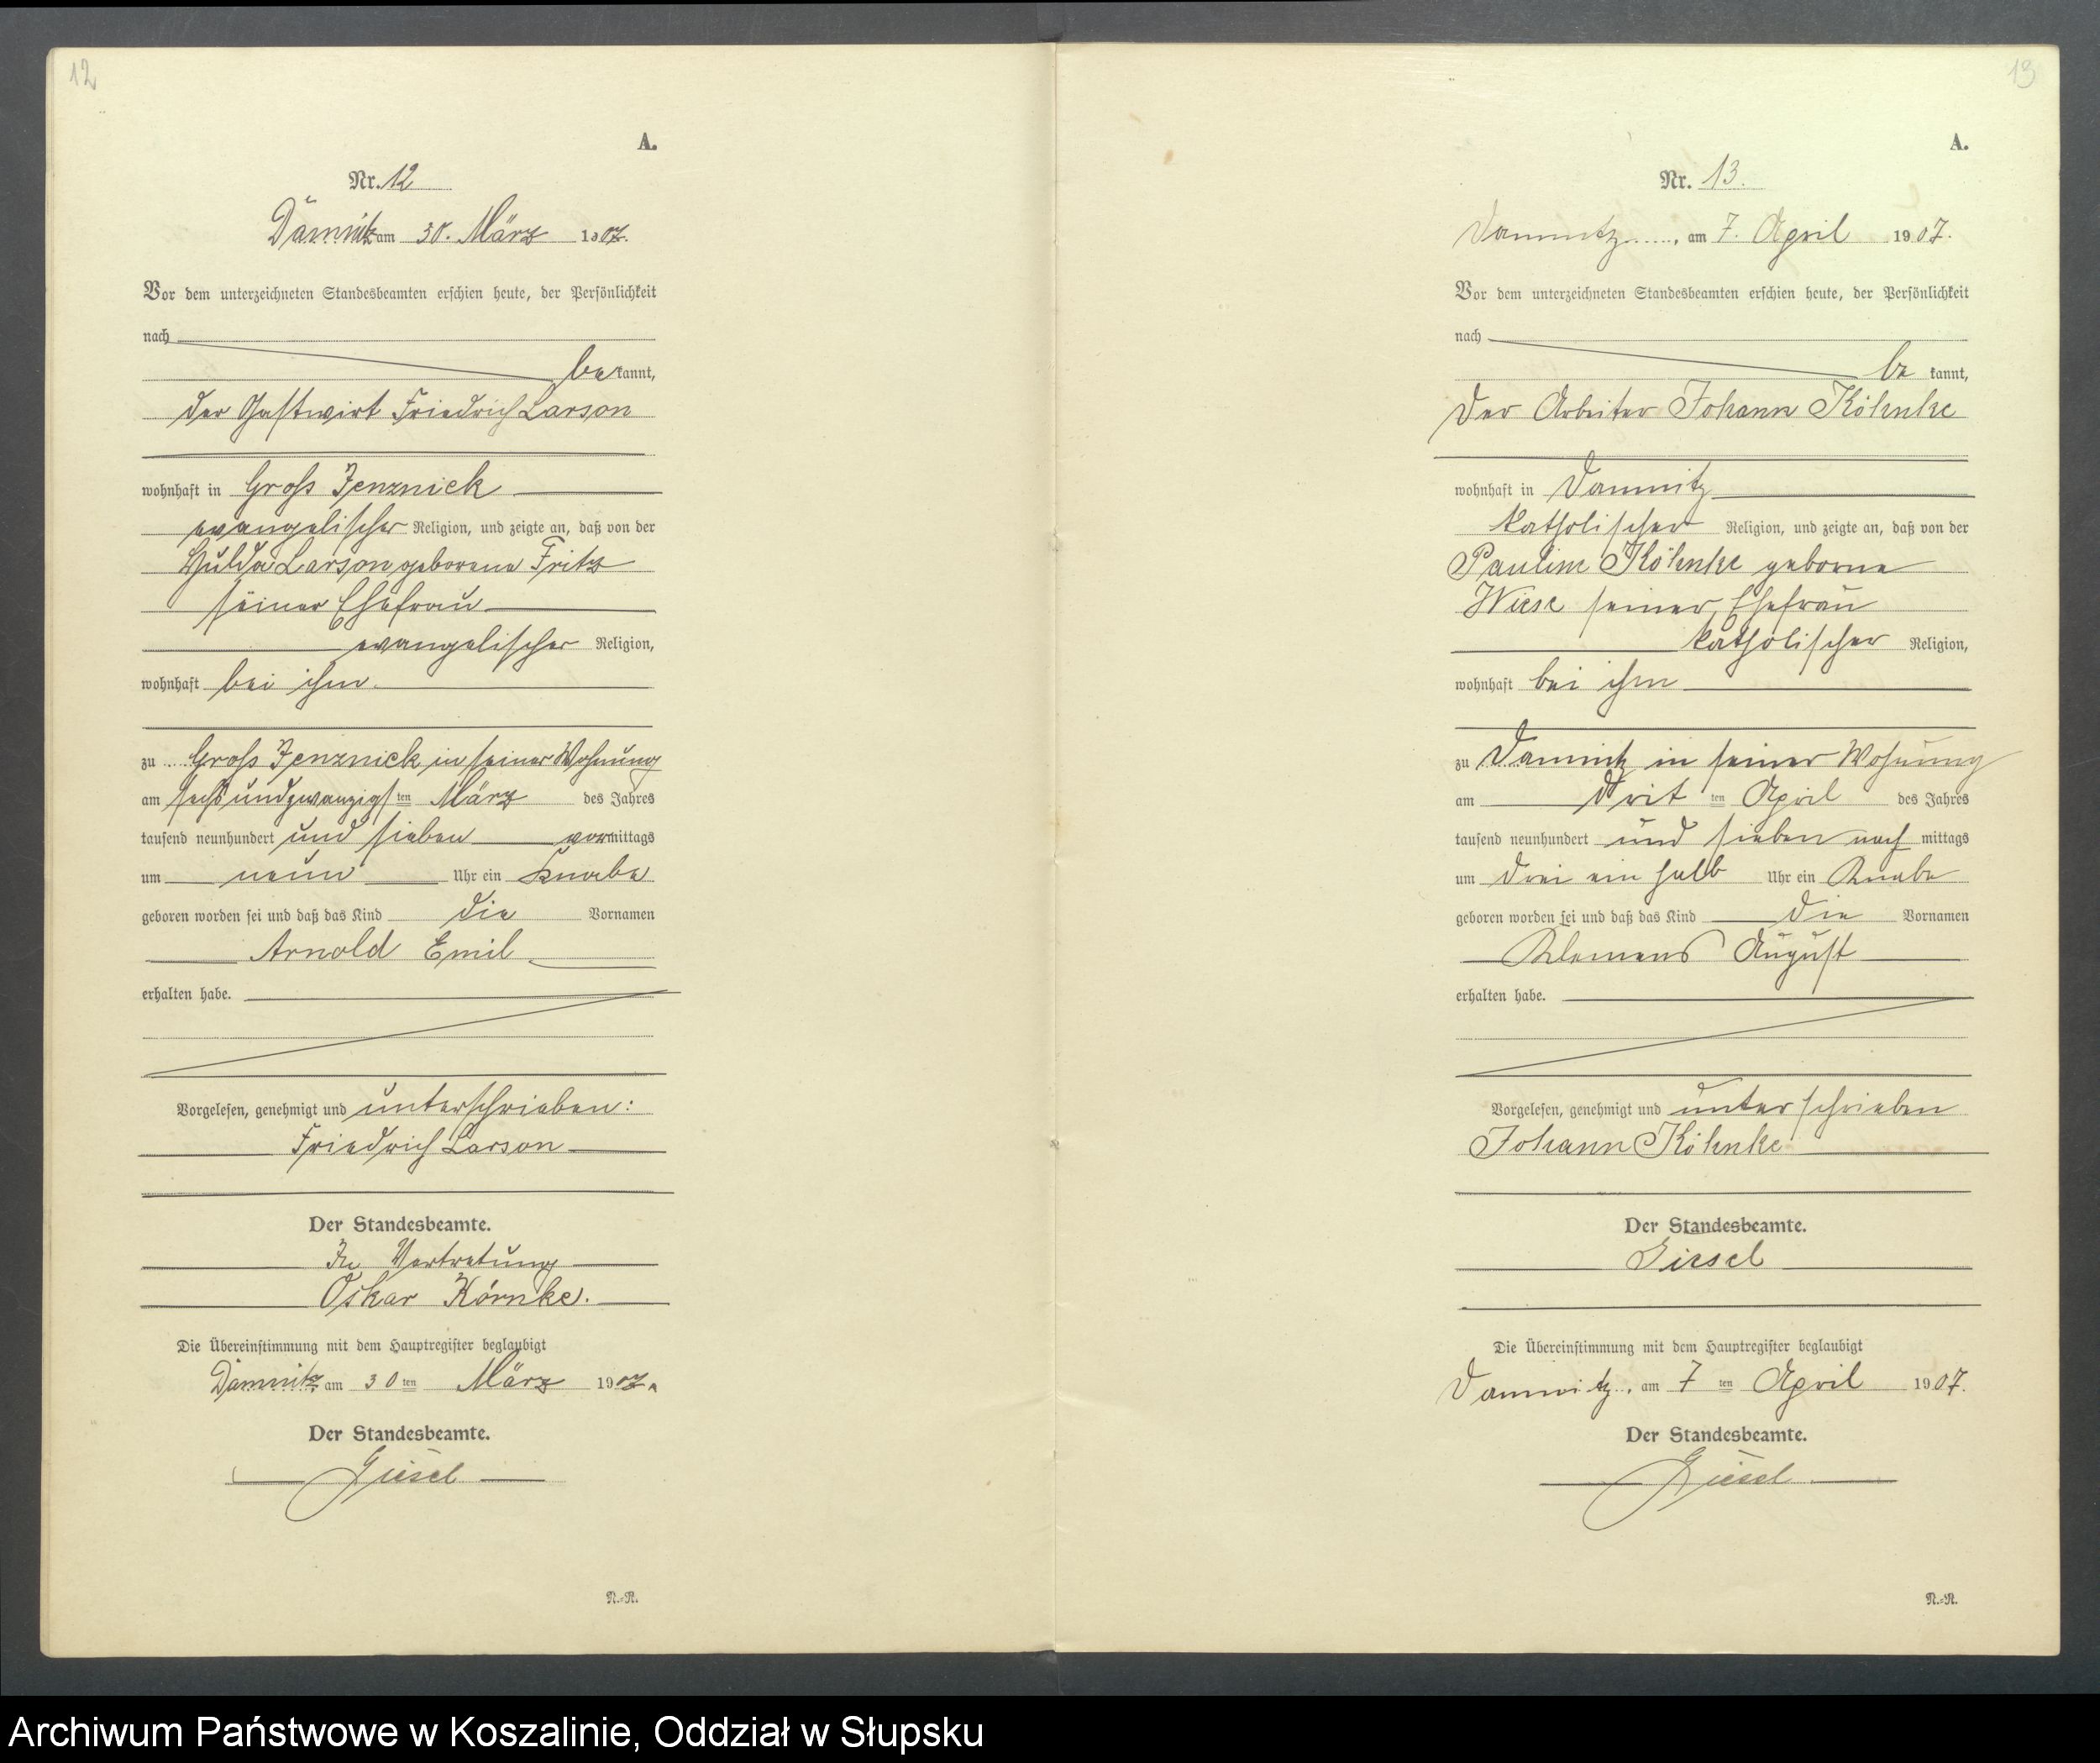 12
A.
Nr. 12
Damnitz am 30. März 1907.
Vor dem unterzeichneten Standesbeamten erschien heute, der Persönlichkeit
nach
bekannt,
der Gastwirt Friedrich Larson
wohnhaft in Gross Jenznick
evangelischer Religion, und zeigte an, daß von der
Hulda Larson geborene Fritz
seiner Ehefrau
evangelischer Religion,
wohnhaft bei ihm.
zu Gross Jenznick in seiner Wohnung
am sechsundzwanzigsten März des Jahres
tausend neunhundert und sieben vormittags
um neun Uhr ein Knabe
geboren worden sei und daß das Kind die Vornamen
Arnold Emil
erhalten habe.
Vorgelesen, genehmigt und unterschrieben:
Friedrich Larson
Der Standesbeamte.
In Vertretung
Oskar Körnke.
Die Übereinstimmung mit dem Hauptregister beglaubigt
Damnitz am 30ten März 1907.
Der Standesbeamte.
Giesel
N.=R.
13
A.
Nr. 13.
Damnitz, am 7. April 1907.
Vor dem unterzeichneten Standesbeamten erschien heute, der Persönlichkeit
nach
be kannt,
der Arbeiter Johann Köhnke
wohnhaft in Damnitz
katholischer Religion, und zeigte an, daß von der
Pauline Köhnke geborne
Wiese seiner Ehefrau
katholischer Religion,
wohnhaft bei ihm
zu Damnitz in seiner Wohnung
am dritten April des Jahres
tausend neunhundert und sieben nach mittags
um drei ein halb Uhr ein Knabe
geboren worden sei und daß das Kind die Vornamen
Klemens August
erhalten habe.
Vorgelesen, genehmigt und unterschrieben
Johann Köhnke
Der Standesbeamte.
Giesel
Die Übereinstimmung mit dem Hauptregister beglaubigt
Damnitz, am 7ten April 1907.
Der Standesbeamte.
Giesel
N.=R.
Archiwum Państwowe w Koszalinie, Oddział w Słupsku